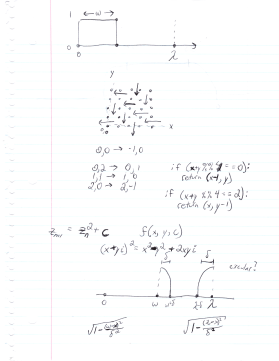 1
← w →
0
0
λ
y
x
0,0 → -1,0
0,2 → 0,1
1,1 → 1,0
2,0 → 2,-1
if (x+y %% 4 == 0):
return (x-1, y)
if (x+y %% 4 == 2):
return (x, y-1)
= z_n^2 + c
f(x, y, c)
(x+yi)^2 = x^2 - y^2 + 2xyi
δ
δ
circular?
0
w
λ-δ
λ